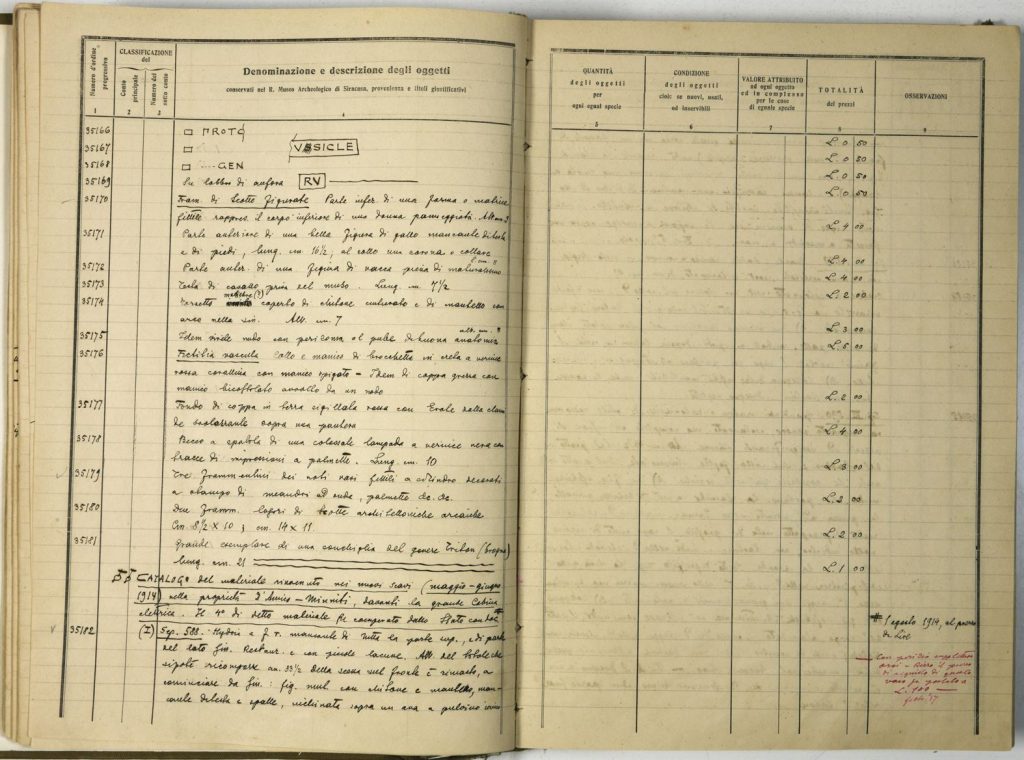 Numero d'ordine progressivo
CLASSIFICAZIONE del
Conto principale
Numero del sotto conto
Denominazione e descrizione degli oggetti
conservati nel R. Museo Archeologico di Siracusa, provenienza e titoli giustificativi
1 2 3 4
35166 PROTO
35167 VESICLE
35168 GEN
35169 Su labbro di anfora RV
35170 Fram. di Parte infer. di una forma o matrice
fittile rappres. il corpo inferiore di una donna panneggiata.
35171 Parte anteriore di una bella figura di gallo mancante di
e di piedi, lung. cm 16½; al collo una corona o collare
35172 Parte anter. di una figura di vacca piena di naturalismo
35173 Testa di cavallo priva del muso. Lung. cm. 7½
35174 coperto di clitone e di mantello con
arco nella sin. Alt. cm. 7
35175 Idem virile nudo con di buona anatomia
35176 Fictilia vascula Collo e manico di brocchetta in creta a vernice
rossa corallina con manico spigato - Idem di coppa grezza con
manico avvolto da un nodo
35177 Fondo di coppa in terra sigillata rossa con Erote dalla
sopra una pantera
35178 Becco a spatola di una colossale lampada a vernice nera con
tracce di impressioni a palmette. Lung. cm. 10
35179 Tre frammentini dei noti vasi fittili a cilindro decorati
a stampo di meandri ad onde, palmette &c. &c.
35180 Due framm. logori di architettoniche arcaiche
Cm 8½ X 10; cm. 14 X 11.
35181 Grande esemplare di una conchiglia del genere Triton (brogna)
lung. cm. 21
CATALOGO del materiale rinvenuto nei nuovi scavi (maggio-giugno
1914) nella proprietà d'Amico-Minniti, davanti la grande Cabina
elettrica. Il 4° di detto materiale fu comperato dallo Stato
35182 (I) Sep. 588. Hydria a f. r. mancante di tutta la parte sup. e di parte
del lato sin. Restaur. e con piccole lacune. Alt. del totale che
si potè ricomporre cm. 33½ della scena nel fronte è rimasto, a
cominciare da sin: fig. mul. con clitone e mantello, man-
cante di testa e spalle, inclinata sopra un ara a pulvino
QUANTITÀ degli oggetti per ogni ogual specie
CONDIZIONE degli oggetti cioè: se nuovi, usati, od inservibili
VALORE ATTRIBUITO ad ogni oggetto ed in complesso per le cose di eguale specie
TOTALITÀ dei prezzi
OSSERVAZIONI
5 6 7 8 9
L. 0 50
L. 0 50
L. 0 50
L. 0 50
L. 4 00
L. 4 00
L. 4 00
L. 2 00
L. 3 00
L. 5 00
L. 2 00
L. 4 00
L. 3 00
L. 2 00
L. 2 00
L. 1 00
1 agosto 1914, al prezzo
di Lire
Con perizia
il prezzo
di acquisto di questo
vaso fu portato a
L. 100